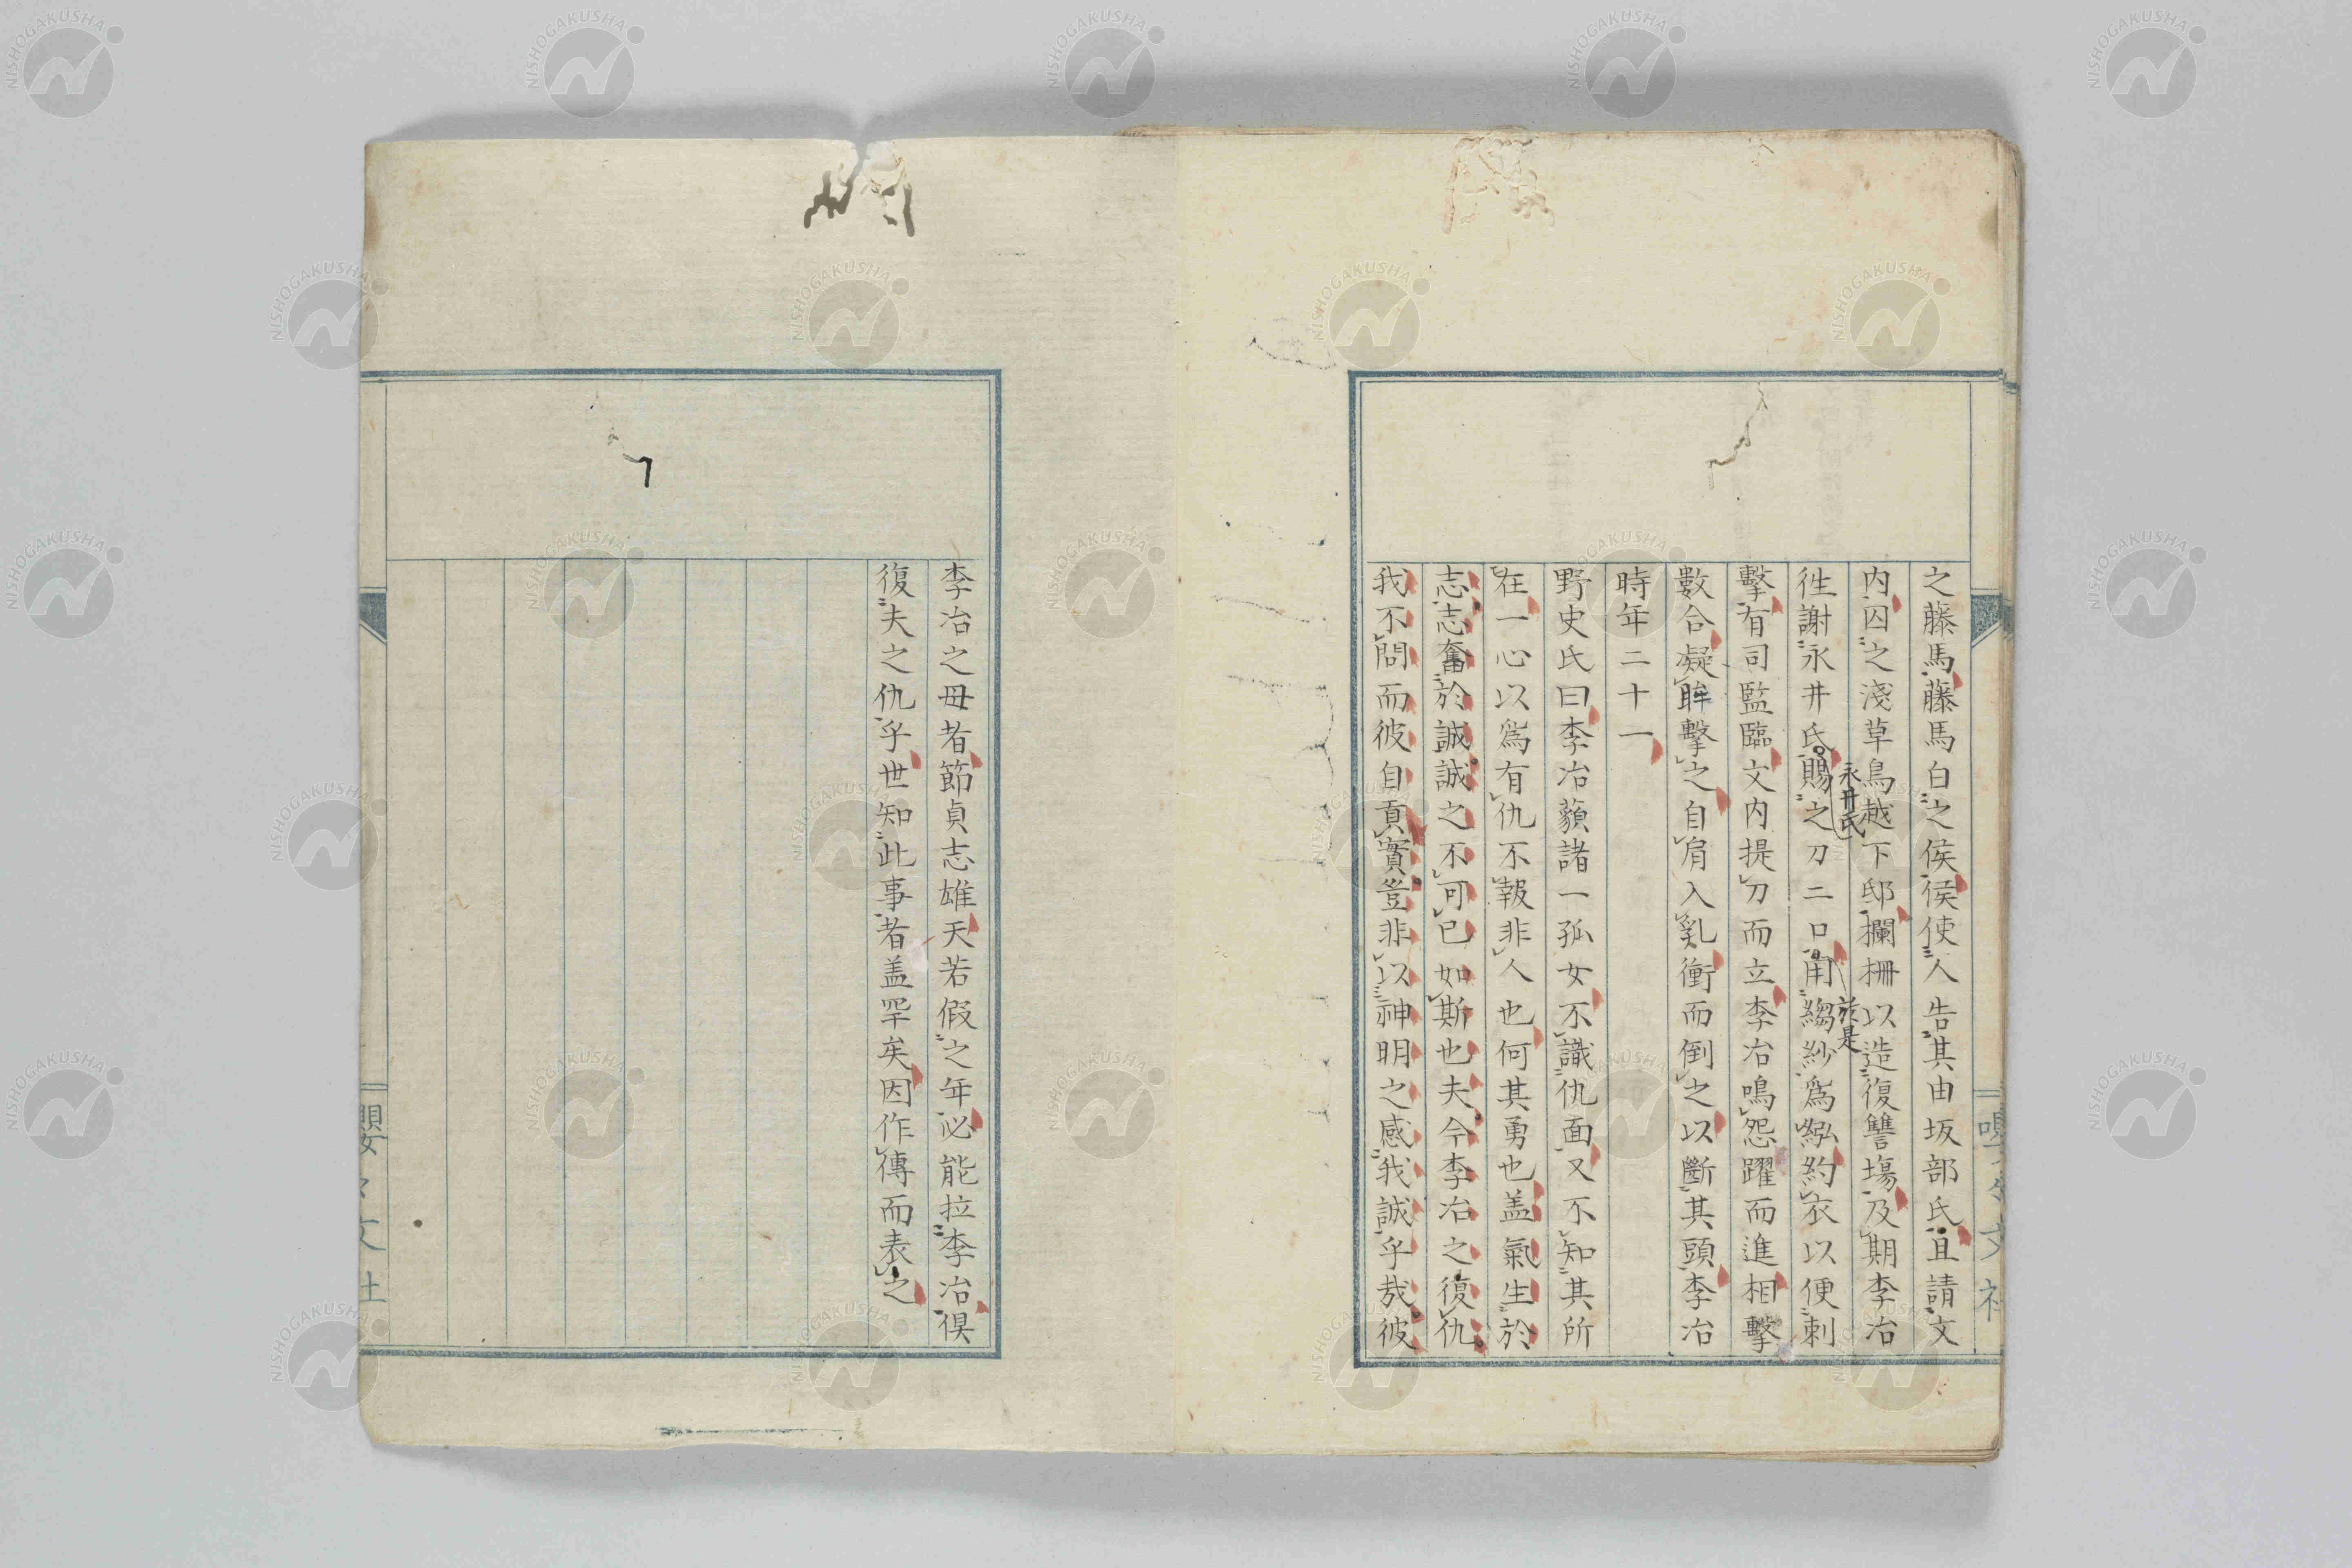 之藤馬藤馬白之侯侯使人告其由坂部氏且請文
内囚之淺草鳥越下邸欄柵以造復讐塲及期李冶
徃謝永井氏賜之刀二口用縐紗爲紭約衣以便刺
永井氏
於是
擊有司監臨文内提刀而立李冶鳴怨躍而進相擊
數合凝眸擊之自肩入乳衝而倒之以斷其頭李冶
時年二十一
野史氏曰李冶藐諸一孤女不識仇面又不知其所
在一心以爲有仇不報非人也何其勇也盖氣生於
志志奮於誠誠之不可已如斯也夫今李冶之復仇
我不問而彼自貢實豈非以神明之感我誠乎哉彼
李冶之母者節貞志雄天若假之年必能拉李冶俱
復夫之仇乎世知此事者盖罕矣因作傳而表之
嚶々文社
嚶々文社
NISHOGAKUSHA